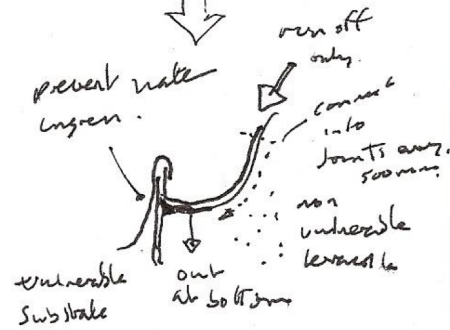 run off
only.
prevent water
ingress.
connect
into
joints every
500mm
non
vulnerable
vulnerable
substrate
out
at bottom